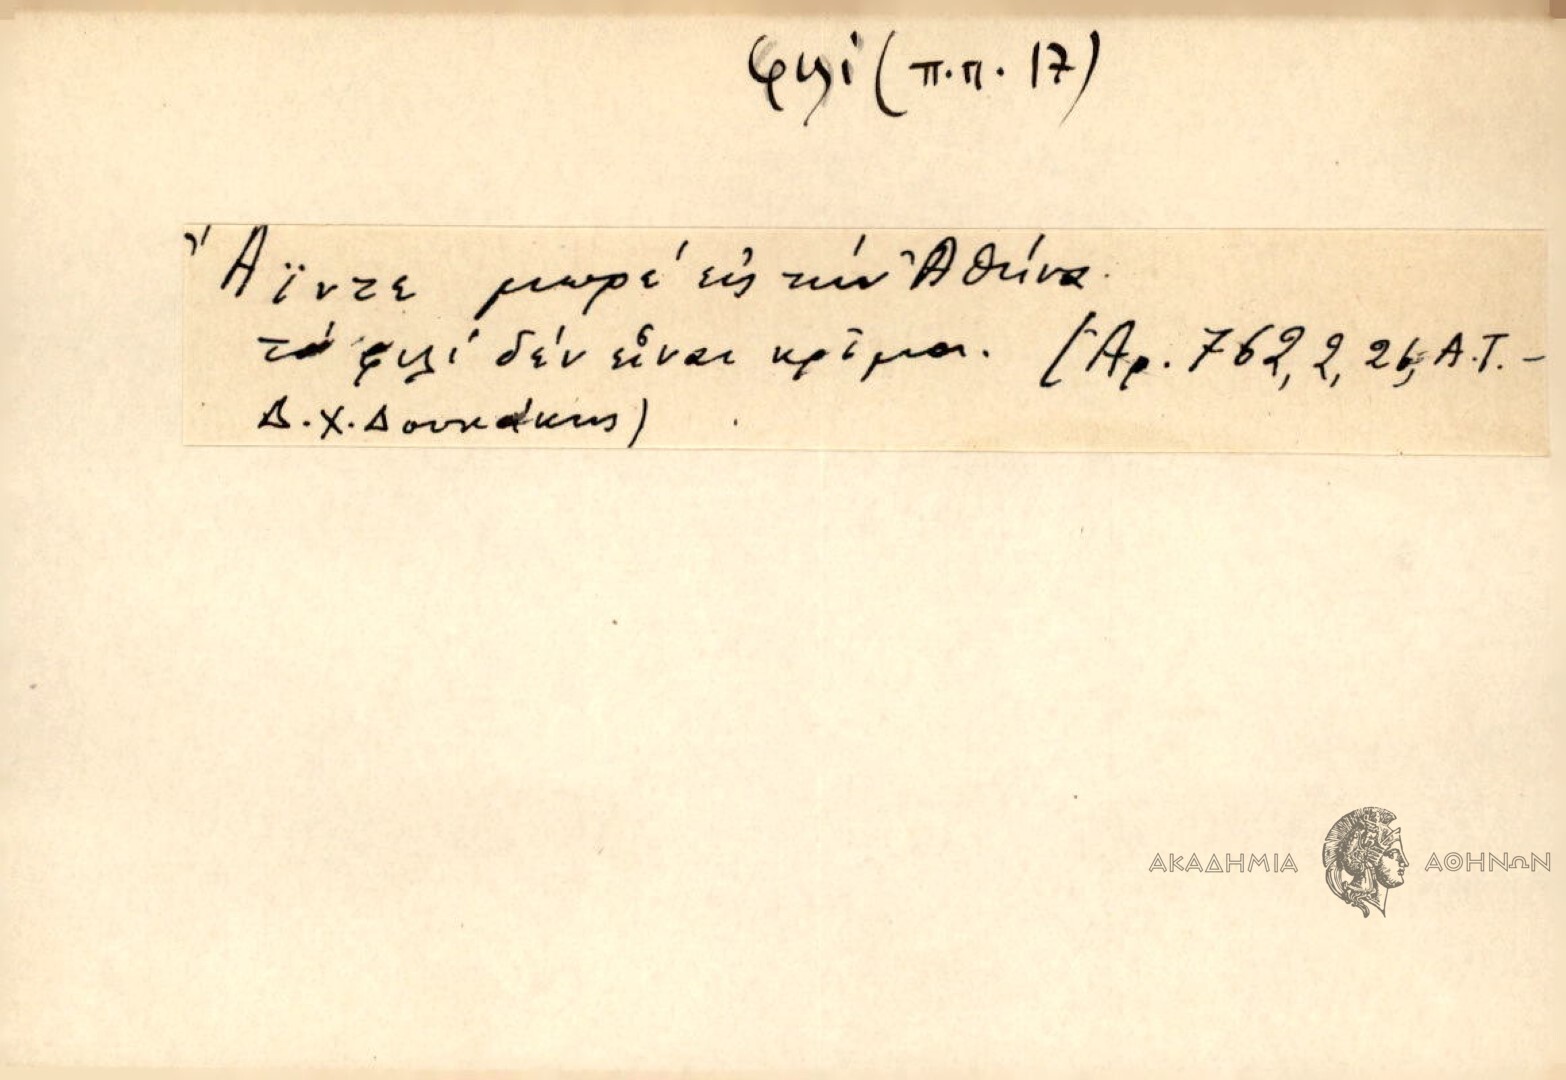 φιλί (π.π. 17)
Ἄϊντε μωρέ εἰς τήν Ἀθήνα
τό φιλί δέν εἶναι κρῖμα. (Ἀρ. 762, 2, 26, Α.Τ. –
Δ.Χ. Δουκάκης)
ΑΚΑΔΗΜΙΑ ΑΘΗΝΩΝ